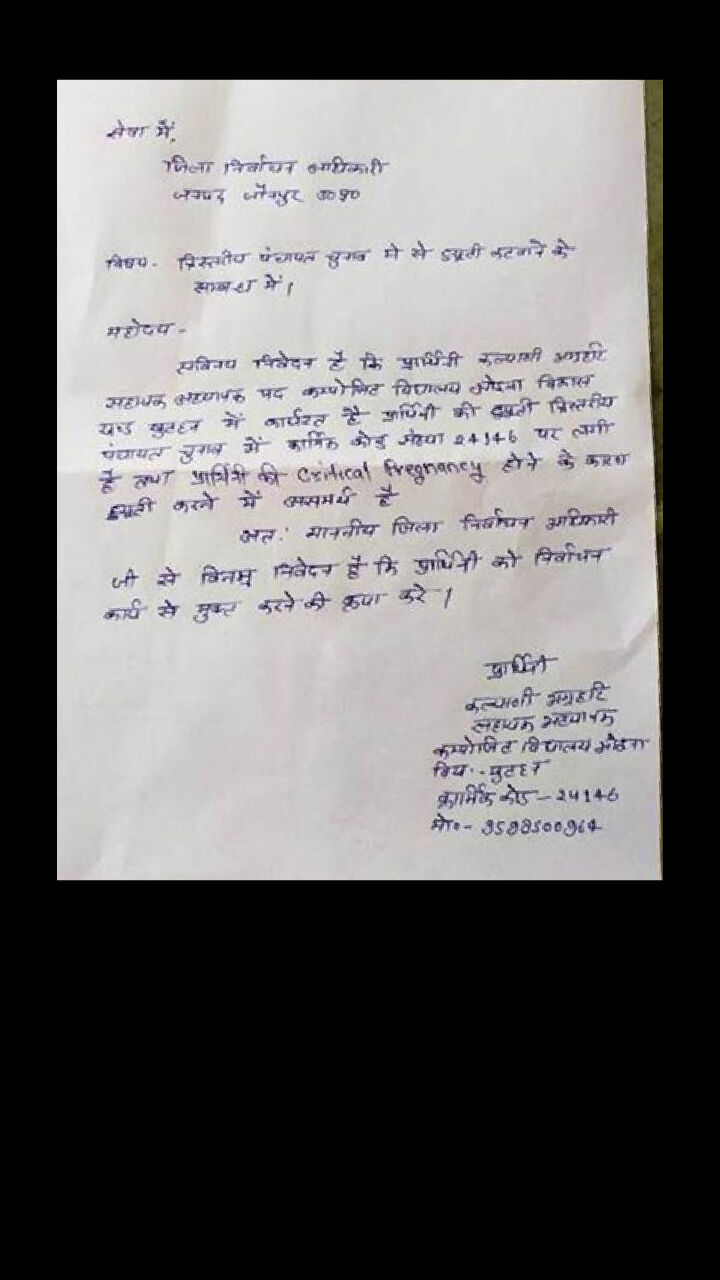 सेवा में,
जिला निर्वाचन अधिकारी
जनपद जौनपुर उ०प्र०
विषय - त्रिस्तरीय पंचायत चुनाव में से ड्यूटी कटवाने के
सम्बन्ध में।
महोदय -
सविनय निवेदन है कि प्रार्थिनी कल्याणी अग्रहरि
सहायक अध्यापक पद कम्पोजिट विद्यालय विकास
खण्ड खुटहन में कार्यरत है प्रार्थिनी की ड्यूटी त्रिस्तरीय
पंचायत चुनाव में कार्मिक कोड संख्या 24146 पर लगी
है तथा प्रार्थिनी की Critical Pregnancy होने के कारण
ड्यूटी करने में असमर्थ है
अतः माननीय जिला निर्वाचन अधिकारी
जी से विनम्र निवेदन है कि प्रार्थिनी को निर्वाचन
कार्य से मुक्त करने की कृपा करे।
प्रार्थिनी
कल्याणी अग्रहरि
सहायक अध्यापक
कम्पोजिट विद्यालय
खुटहन
कार्मिक कोड - 24146
मो०- 9598500964